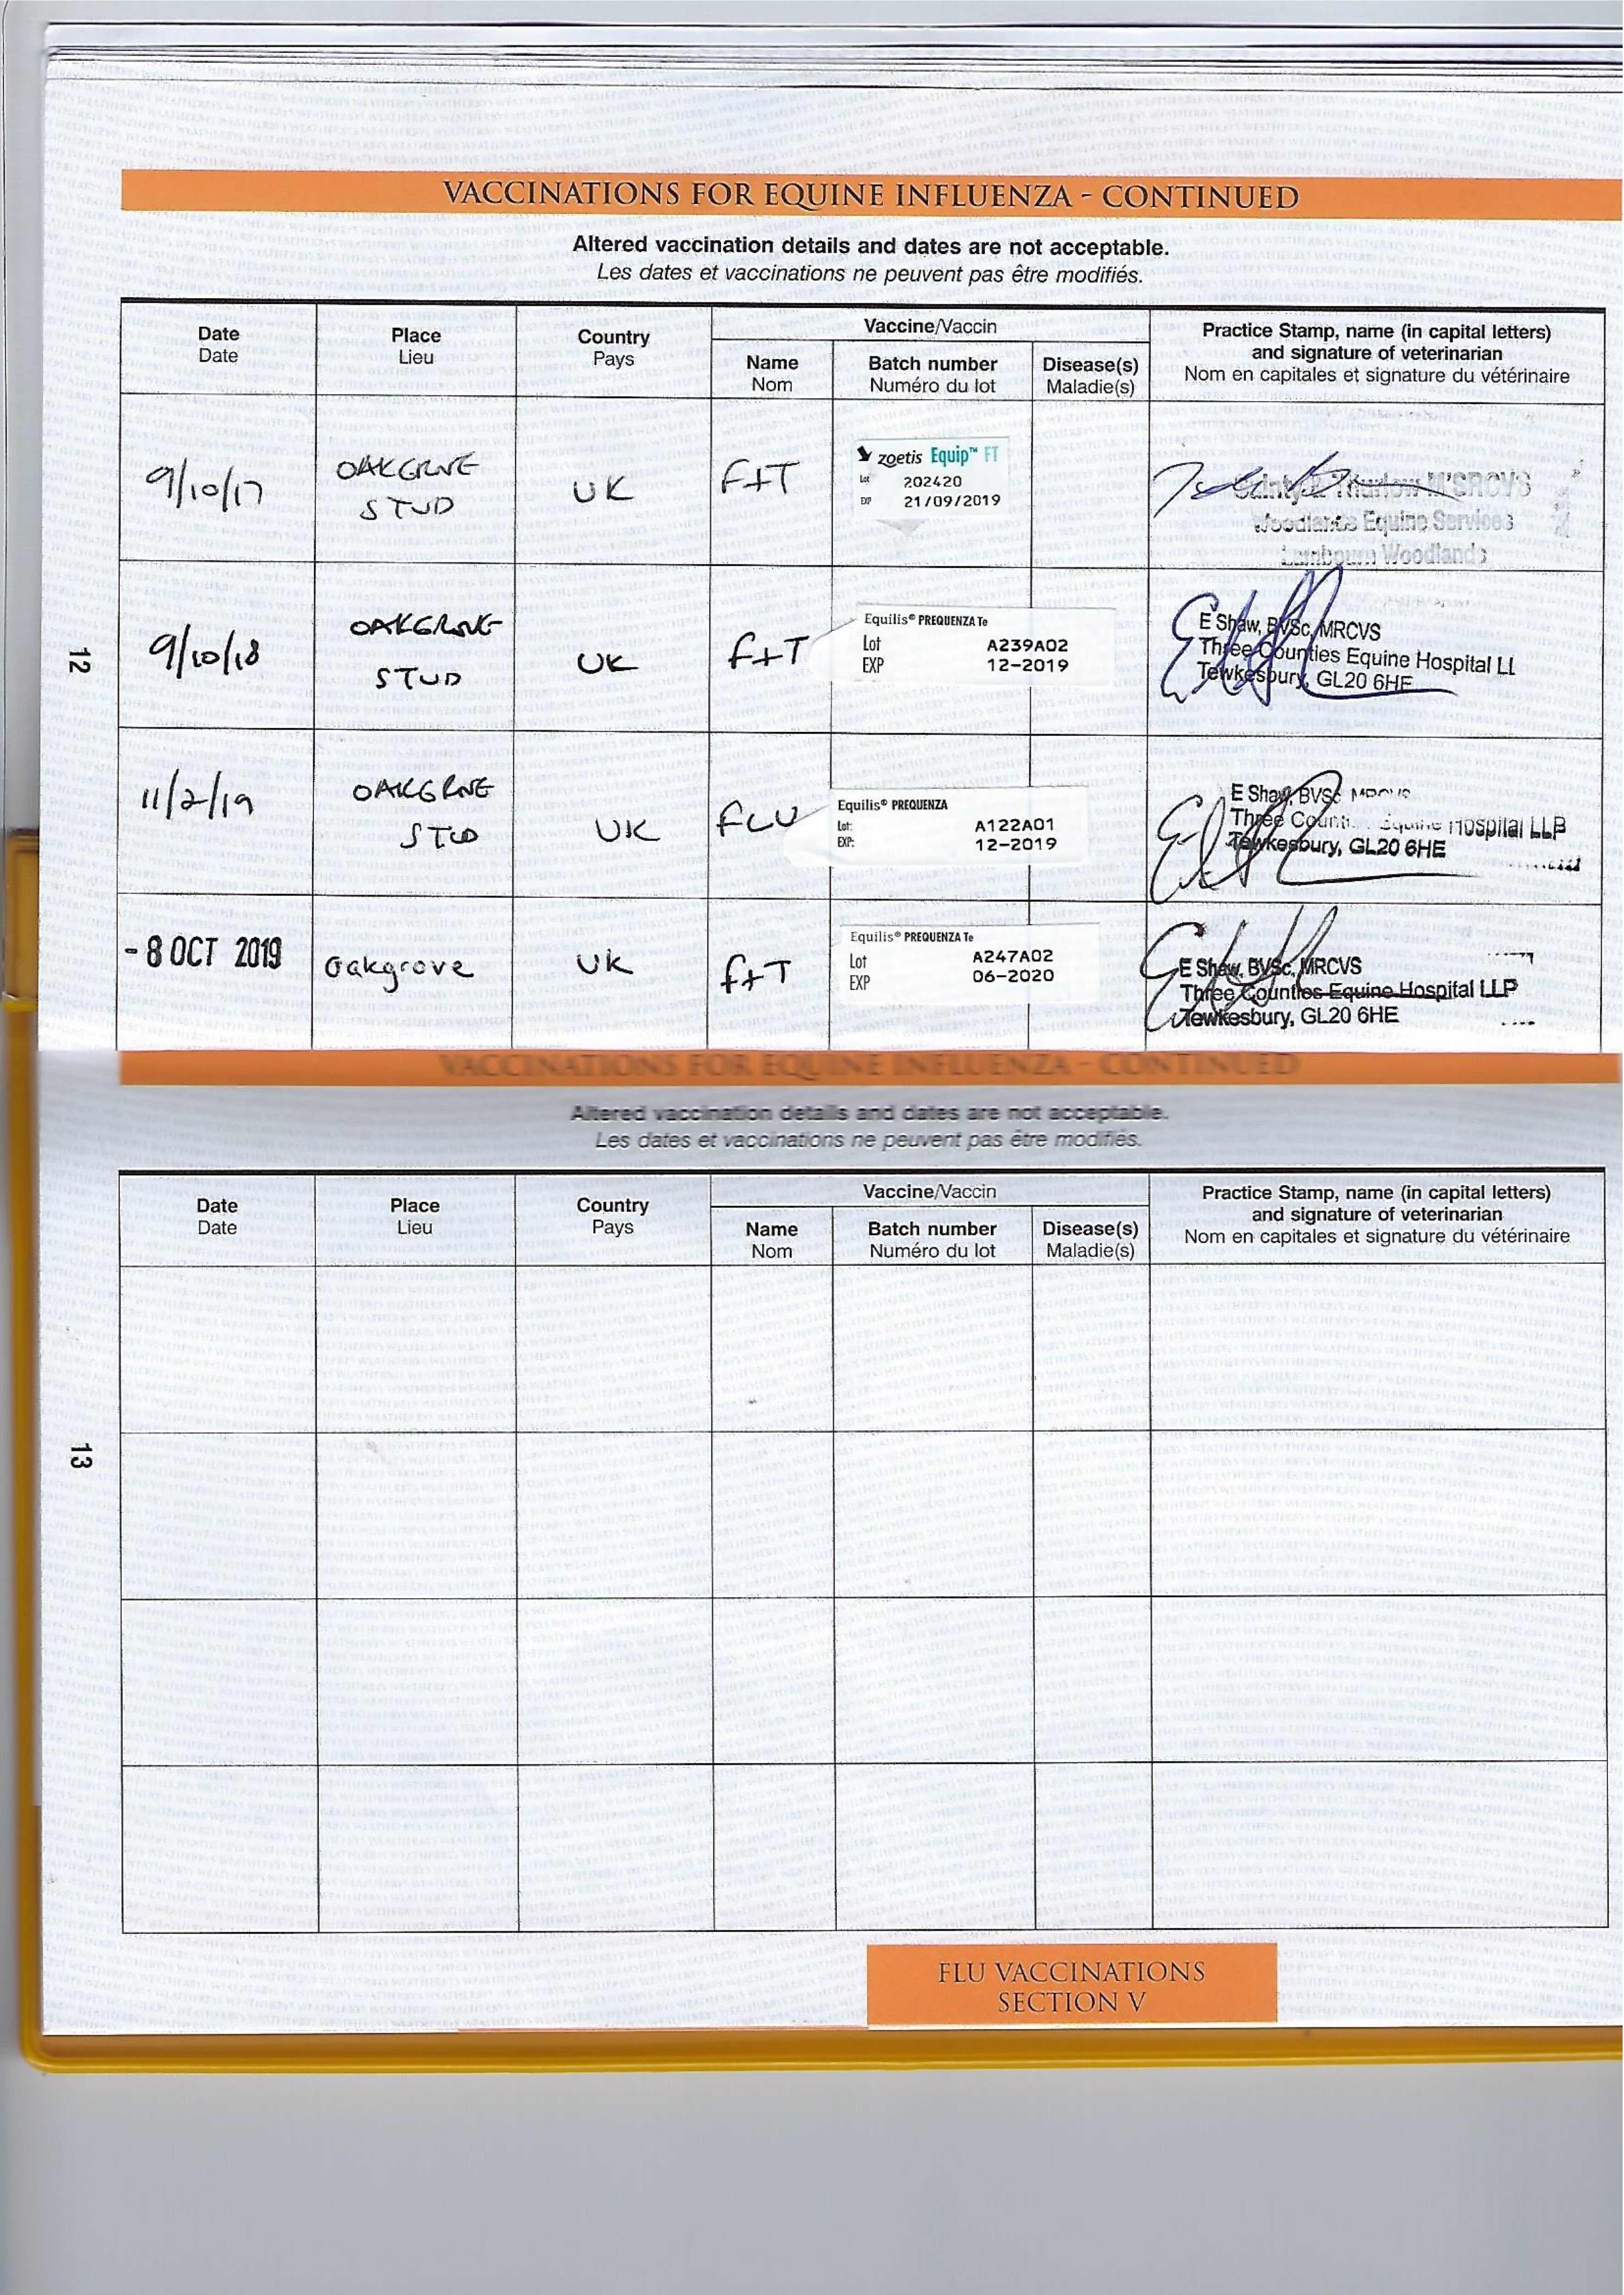 VACCINATIONS FOR EQUINE INFLUENZA - CONTINUED
Altered vaccination details and dates are not acceptable.
Les dates et vaccinations ne peuvent pas être modifiés.
Date
Date
Place
Lieu
Country
Pays
Vaccine/Vaccin
Name
Nom
Batch number
Numéro du lot
Disease(s)
Maladie(s)
Practice Stamp, name (in capital letters)
and signature of veterinarian
Nom en capitales et signature du vétérinaire
9/10/17
STUD
UK
F+T
zoetis Equip™ FT
Lot 202420
EXP 21/09/2019
Thurlow M'SRCVS
Woodlands Equine Services
Lambourn Woodlands
12
9/10/18
STUD
UK
F+T
Equilis® PREQUENZA Te
Lot A239A02
EXP 12-2019
E Shaw, BVSc, MRCVS
Three Counties Equine Hospital LL
Tewkesbury, GL20 6HE
11/2/19
STUD
UK
FLU
Equilis® PREQUENZA
Lot: A122A01
EXP: 12-2019
E Shaw, BVSc MRCVS
Three Counti Equine Hospital LLP
Tewkesbury, GL20 6HE
-8 OCT 2019
Oakgrove
UK
F+T
Equilis® PREQUENZA Te
Lot A247A02
EXP 06-2020
E Shaw, BVSc, MRCVS
Three Counties Equine Hospital LLP
Tewkesbury, GL20 6HE
VACCINATIONS FOR EQUINE INFLUENZA - CONTINUED
Altered vaccination details and dates are not acceptable.
Les dates et vaccinations ne peuvent pas être modifiés.
Date
Date
Place
Lieu
Country
Pays
Vaccine/Vaccin
Name
Nom
Batch number
Numéro du lot
Disease(s)
Maladie(s)
Practice Stamp, name (in capital letters)
and signature of veterinarian
Nom en capitales et signature du vétérinaire
13
FLU VACCINATIONS
SECTION V